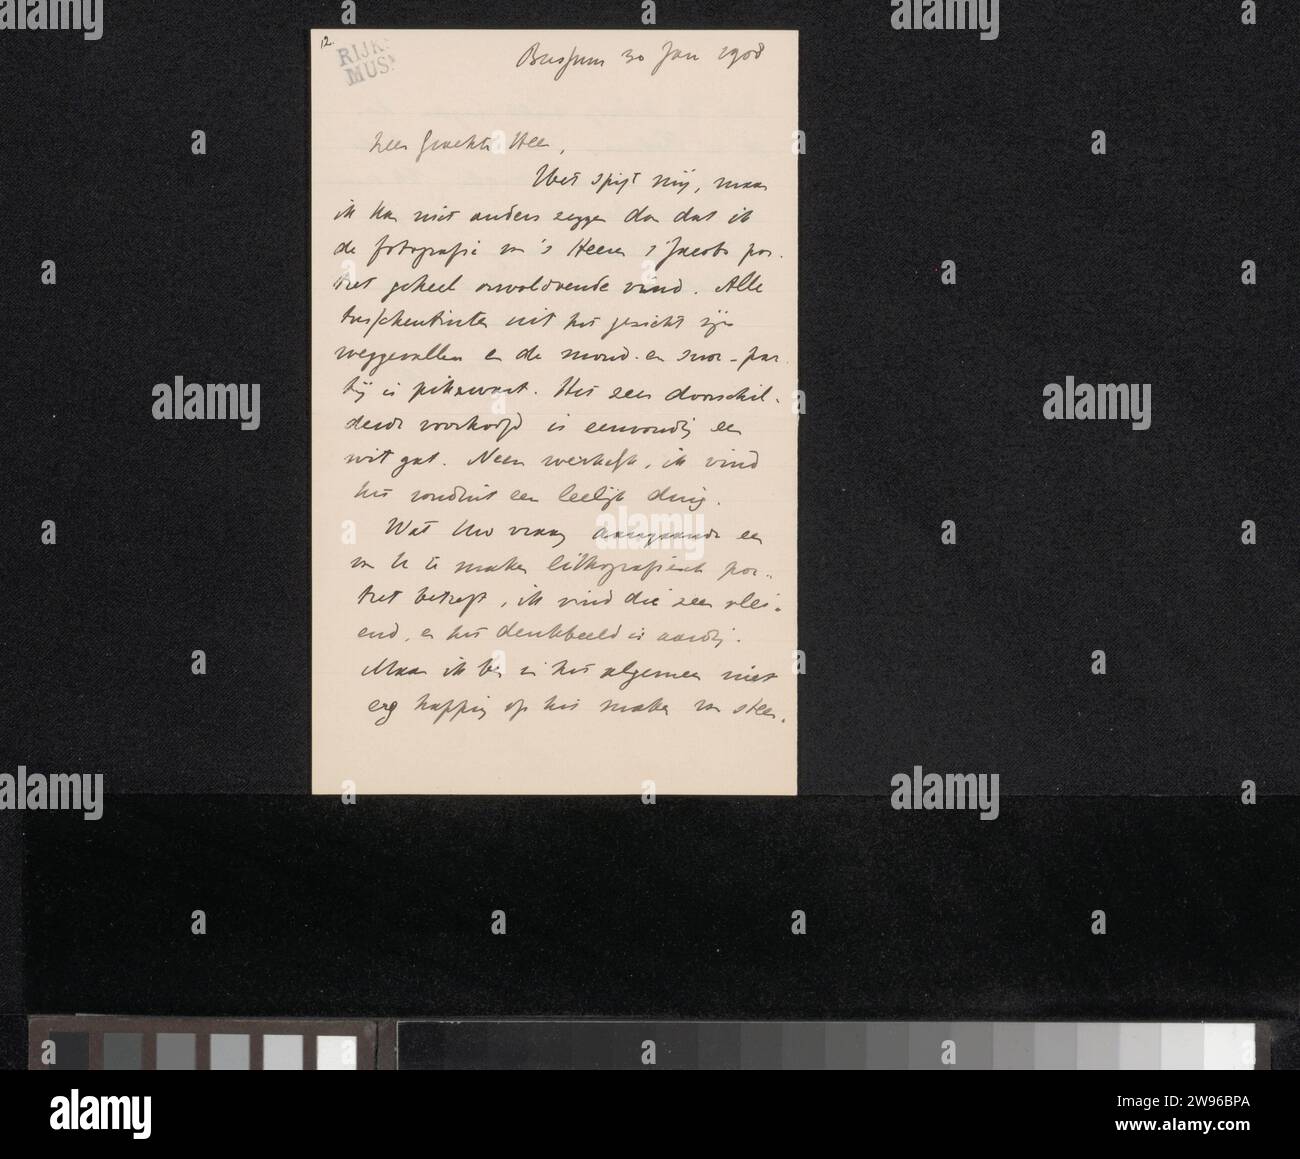 12.
RIJKS
MUS
Bussum 30 Jan 1908
Zeer Geachte Heer,
Het spijt mij, maar
ik kan niet anders zeggen dan dat ik
de fotografie van 's Heeren s'Jacobs por-
tret geheel onvoldoende vind. Alle
tusschentinten uit het gezicht zijn
weggevallen en de mond- en snor-par
tij is pikzwart. Het zeer doorschil-
derde voorhoofd is eenvoudig een
wit gat. Neen werkelijk, ik vind
het ronduit een leelijk ding.
Wat Uw vraag aangaande een
van U te maken lithografisch por-
tret betreft, ik vind die zeer vlei-
end, en het denkbeeld is aardig.
Maar ik ben in het algemeen niet
erg happig op het maken van steen-
alamy
Image ID: 2W96BPA
www.alamy.com